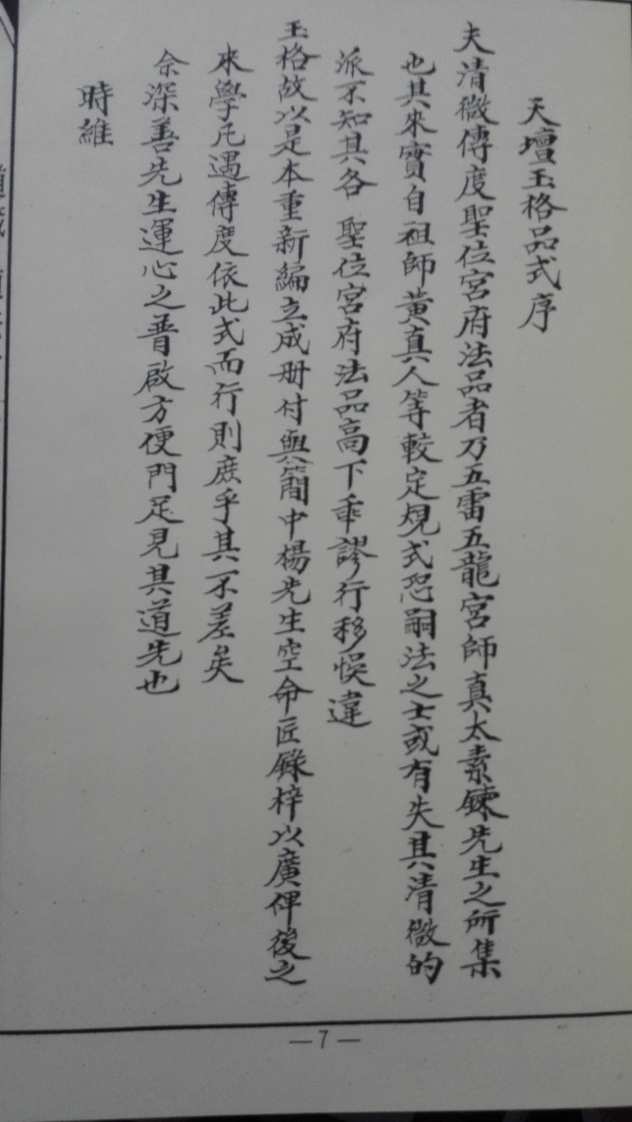 天壇玉格品式序
夫清微傳度聖位宮府法品者乃五雷五龍宮師真太素鍊先生之所集
也其來實自祖師黃真人等較定規式恐嗣法之士或有失其清微的
派不知其各 聖位宮府法品高下乖謬行移悞違
玉格故以是本重新編立成册付與簡中楊先生空命匠錄梓以廣俾後之
來學凡遇傳度依此式而行則庶乎其不差矣
余深善先生運心之普啟方便門足見其道先也
時維
—7—